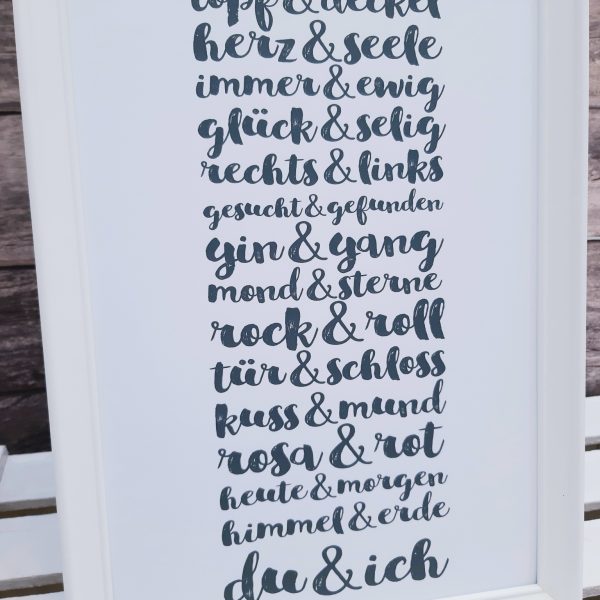 topf & deckel
herz & seele
immer & ewig
glück & selig
rechts & links
gesucht & gefunden
yin & yang
mond & sterne
rock & roll
tür & schloss
kuss & mund
rosa & rot
heute & morgen
himmel & erde
du & ich